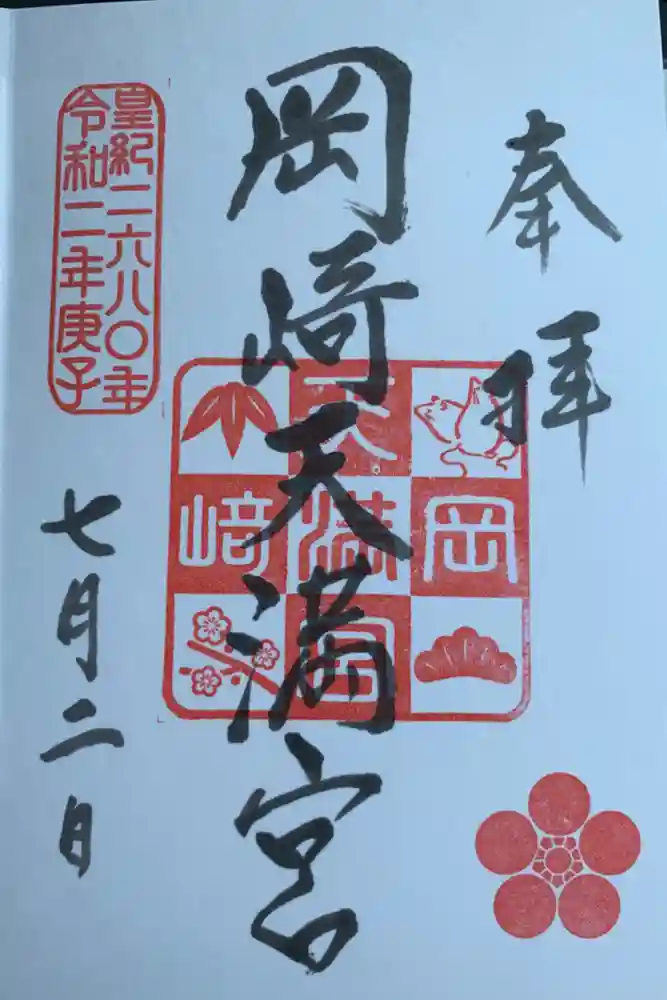 奉拝
岡崎天満宮
岡﨑
天満宮
皇紀二六八〇年
令和二年庚子
七月二日